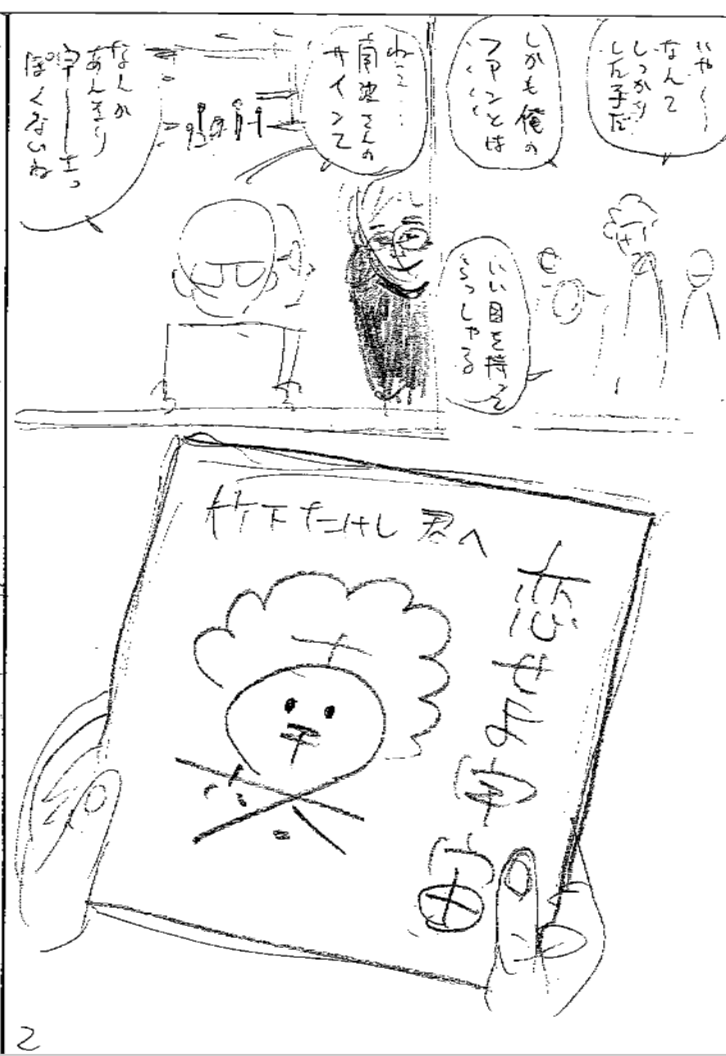 いや〜〜
なんて
しっかり
した子だ
しかも俺の
ファンとは
・・・
いい目を持って
らっしゃる
ねえ…
南波さんの
サインて
なんか
あんまり
ぽくないね
竹下たけし君へ
2